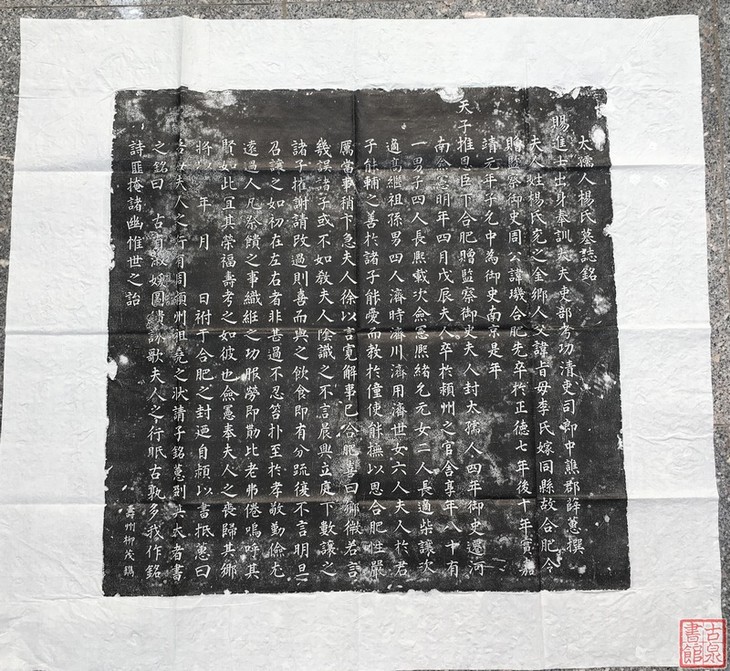 太孺人楊氏墓誌銘
賜進士出身奉訓大夫吏部考功清吏司郎中譙郡薛蕙撰
夫人姓楊氏兗之金鄉人父諱旨母李氏嫁同縣故合肥令
贈監察御史周公諱璣合肥先卒於正德七年後十年實嘉
靖元年子允中為御史南京是年
天子推恩臣下合肥贈監察御史夫人封太孺人四年御史遷河
南僉憲明年四月戊辰夫人卒於潁州之官舍享年八十有
一男子四人長熙載次僉憲熙緒允元女二人長適柴讓次
適高繼祖孫男四人濟時濟川濟用濟世女六人夫人於君
子能輔之善於諸子能愛而教於僮使能撫以恩合肥性嚴
厲當事稍卞急夫人徐以言寬解事已合肥喜曰鄉微若言
幾誤諸子或不如教夫人陰識之不言晨興立庭下數讓之
諸子摧謝請改過則喜而與之飲食即有分疏復不言明旦
召讓之如初在左右者非甚過不忍笞扑至於孝敬勤儉尤
遠過人凡祭饋之事織紝之功服勞即勩比老弗倦嗚呼其
賢如此宜其榮福壽考之如彼也僉憲奉夫人之喪歸其鄉
將以 年 月 日祔于合肥之封乃自潁以書抵蕙曰
夫人之行有同潁州祖堯之狀請子銘蕙則其大者書
之銘曰 古有淑媛圖績詠歌夫人之行眂古孰多我作銘
詩匪掩諸幽惟世之詒
壽州柳茂鐫
古泉書館